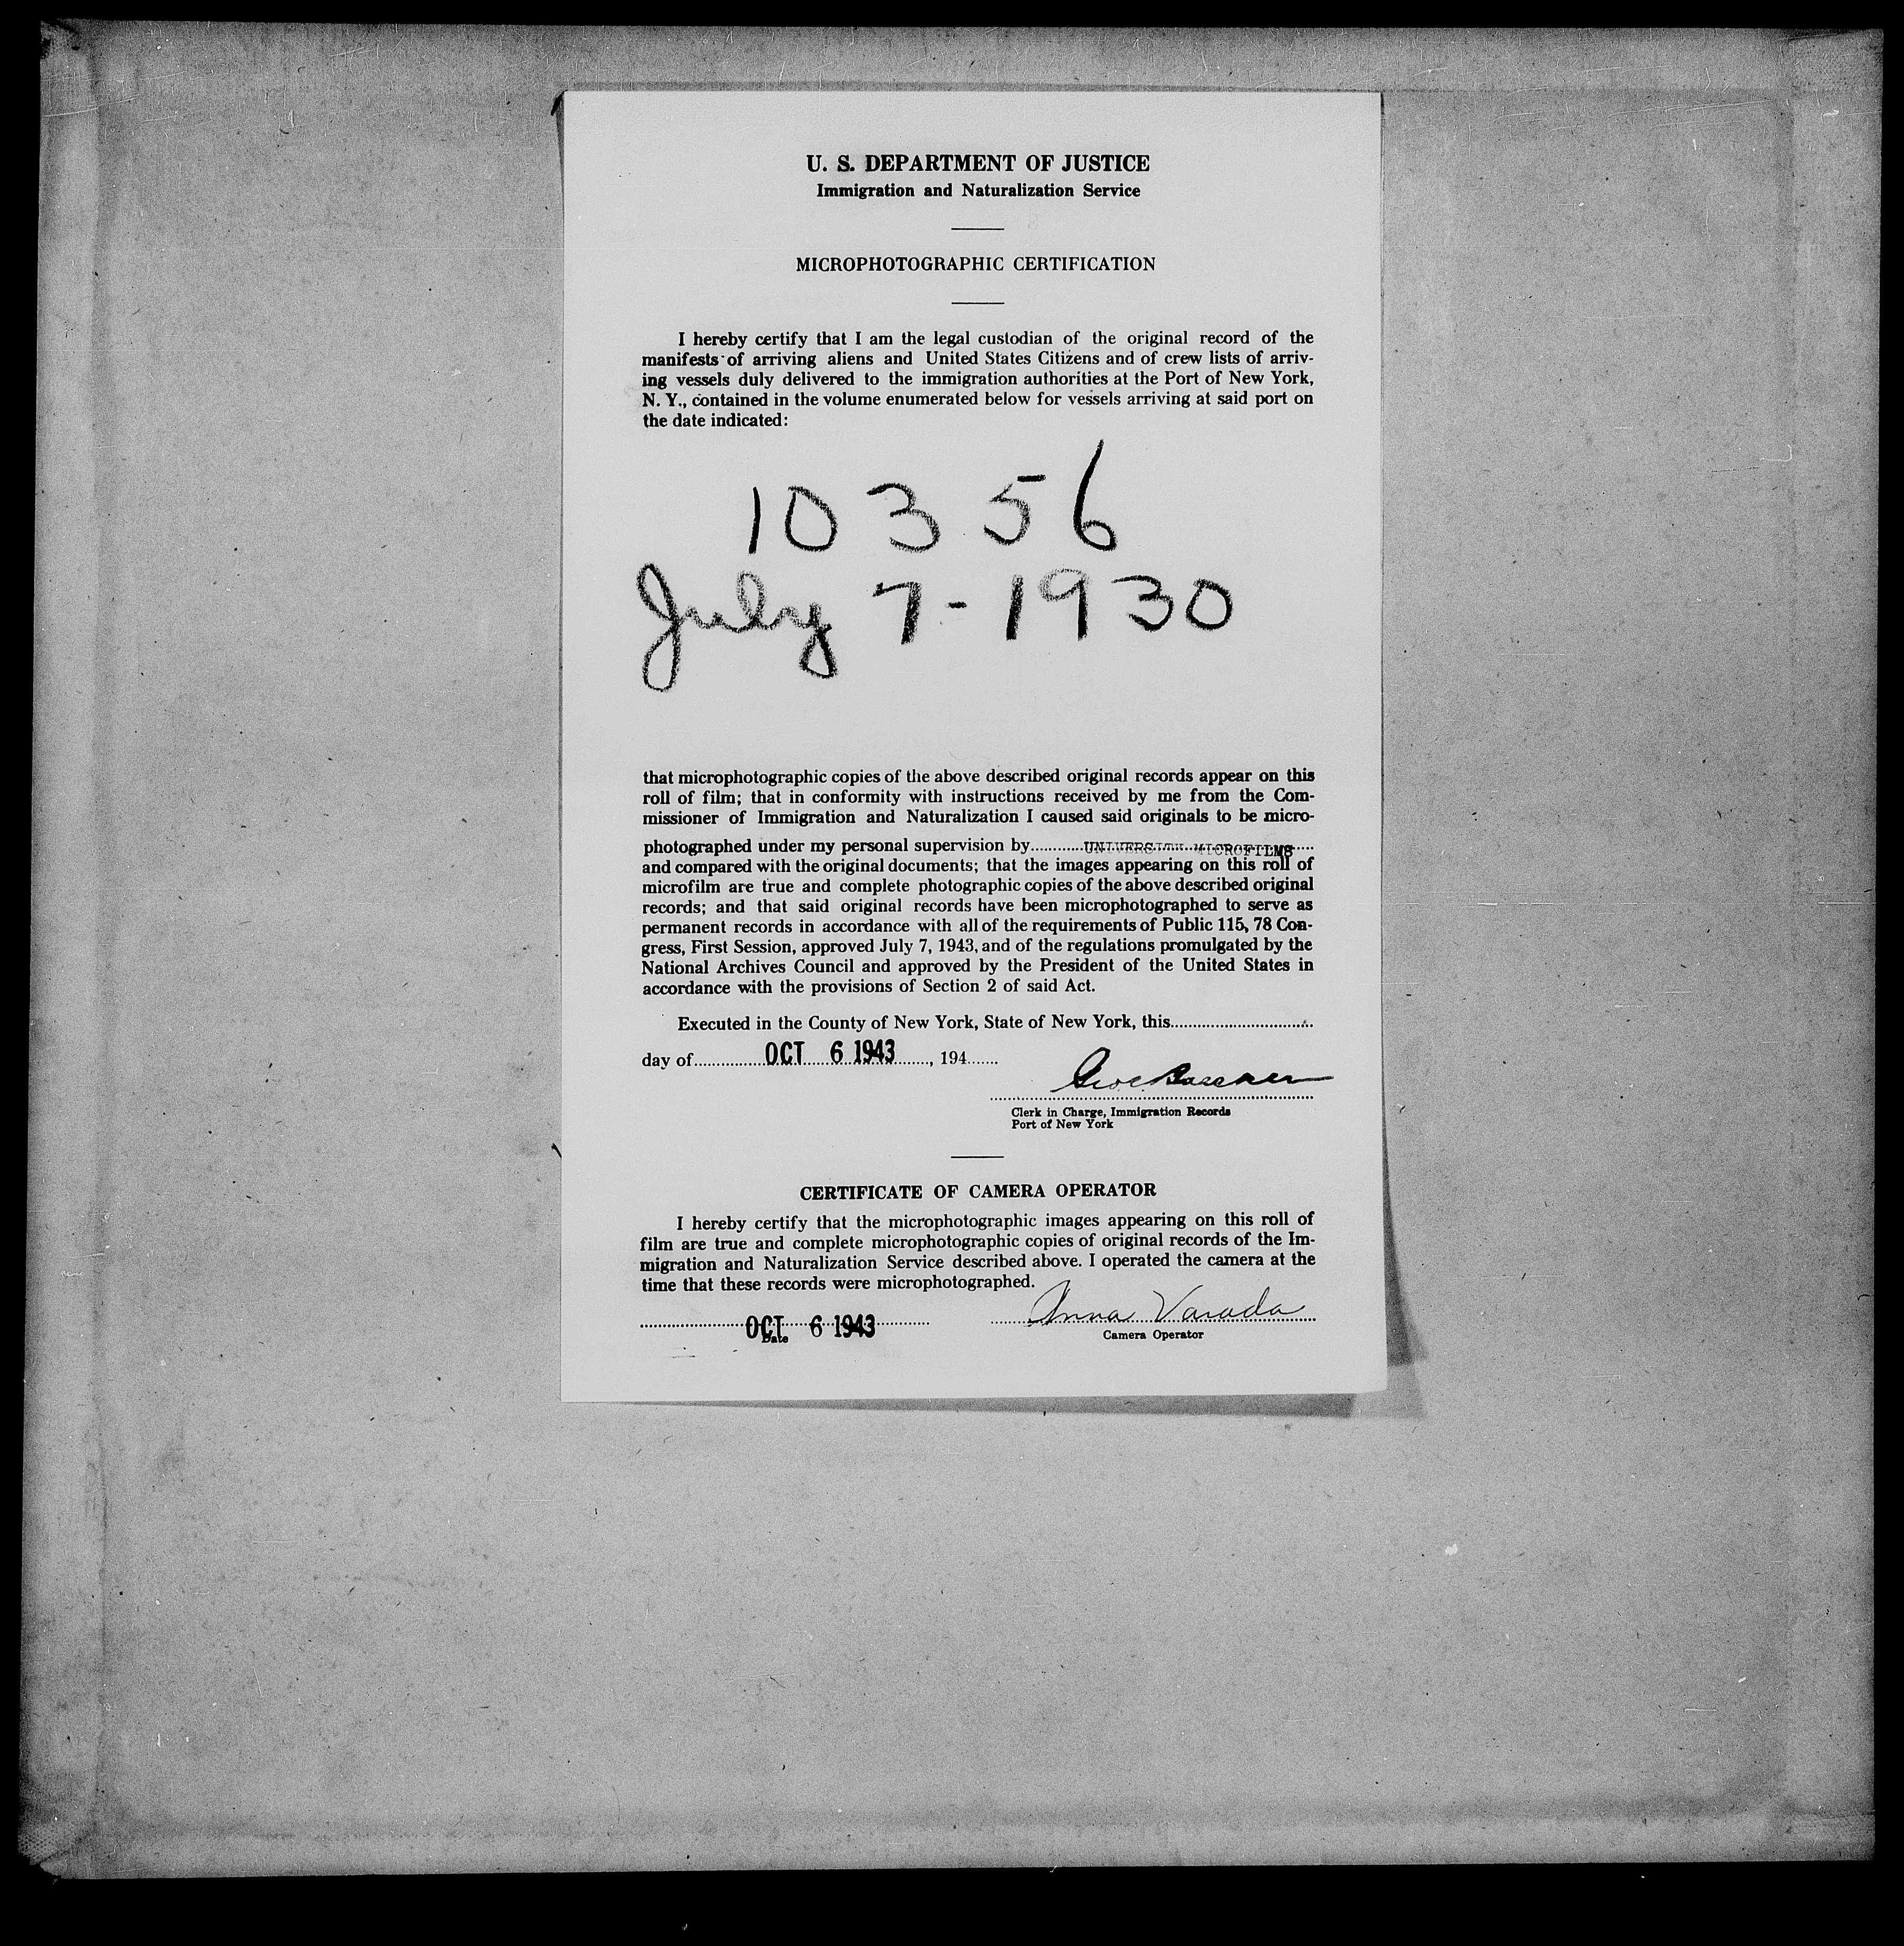 U. S. DEPARTMENT OF JUSTICE
Immigration and Naturalization Service
MICROPHOTOGRAPHIC CERTIFICATION
I hereby certify that I am the legal custodian of the original record of the
manifests of arriving aliens and United States Citizens and of crew lists of arriv-
ing vessels duly delivered to the immigration authorities at the Port of New York,
N. Y., contained in the volume enumerated below for vessels arriving at said port on
the date indicated:
10356
July 7-1930
that microphotographic copies of the above described original records appear on this
roll of film; that in conformity with instructions received by me from the Com-
missioner of Immigration and Naturalization I caused said originals to be micro-
photographed under my personal supervision by UNIVERSITY MICROFILMS
and compared with the original documents; that the images appearing on this roll of
microfilm are true and complete photographic copies of the above described original
records; and that said original records have been microphotographed to serve as
permanent records in accordance with all of the requirements of Public 115, 78 Con-
gress, First Session, approved July 7, 1943, and of the regulations promulgated by the
National Archives Council and approved by the President of the United States in
accordance with the provisions of Section 2 of said Act.
Executed in the County of New York, State of New York, this
day of OCT 6 1943, 194
Clerk in Charge, Immigration Records
Port of New York
CERTIFICATE OF CAMERA OPERATOR
I hereby certify that the microphotographic images appearing on this roll of
film are true and complete microphotographic copies of original records of the Im-
migration and Naturalization Service described above. I operated the camera at the
time that these records were microphotographed.
OCT 6 1943 Anna Varada
Date Camera Operator